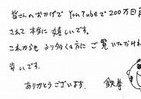 皆さんのおかげで YouTubeで200万回
されて 本当に 嬉しいです。
これからも より多くの方に ご覧いただけれ
幸いです。
ありがとうございます。 鉄拳